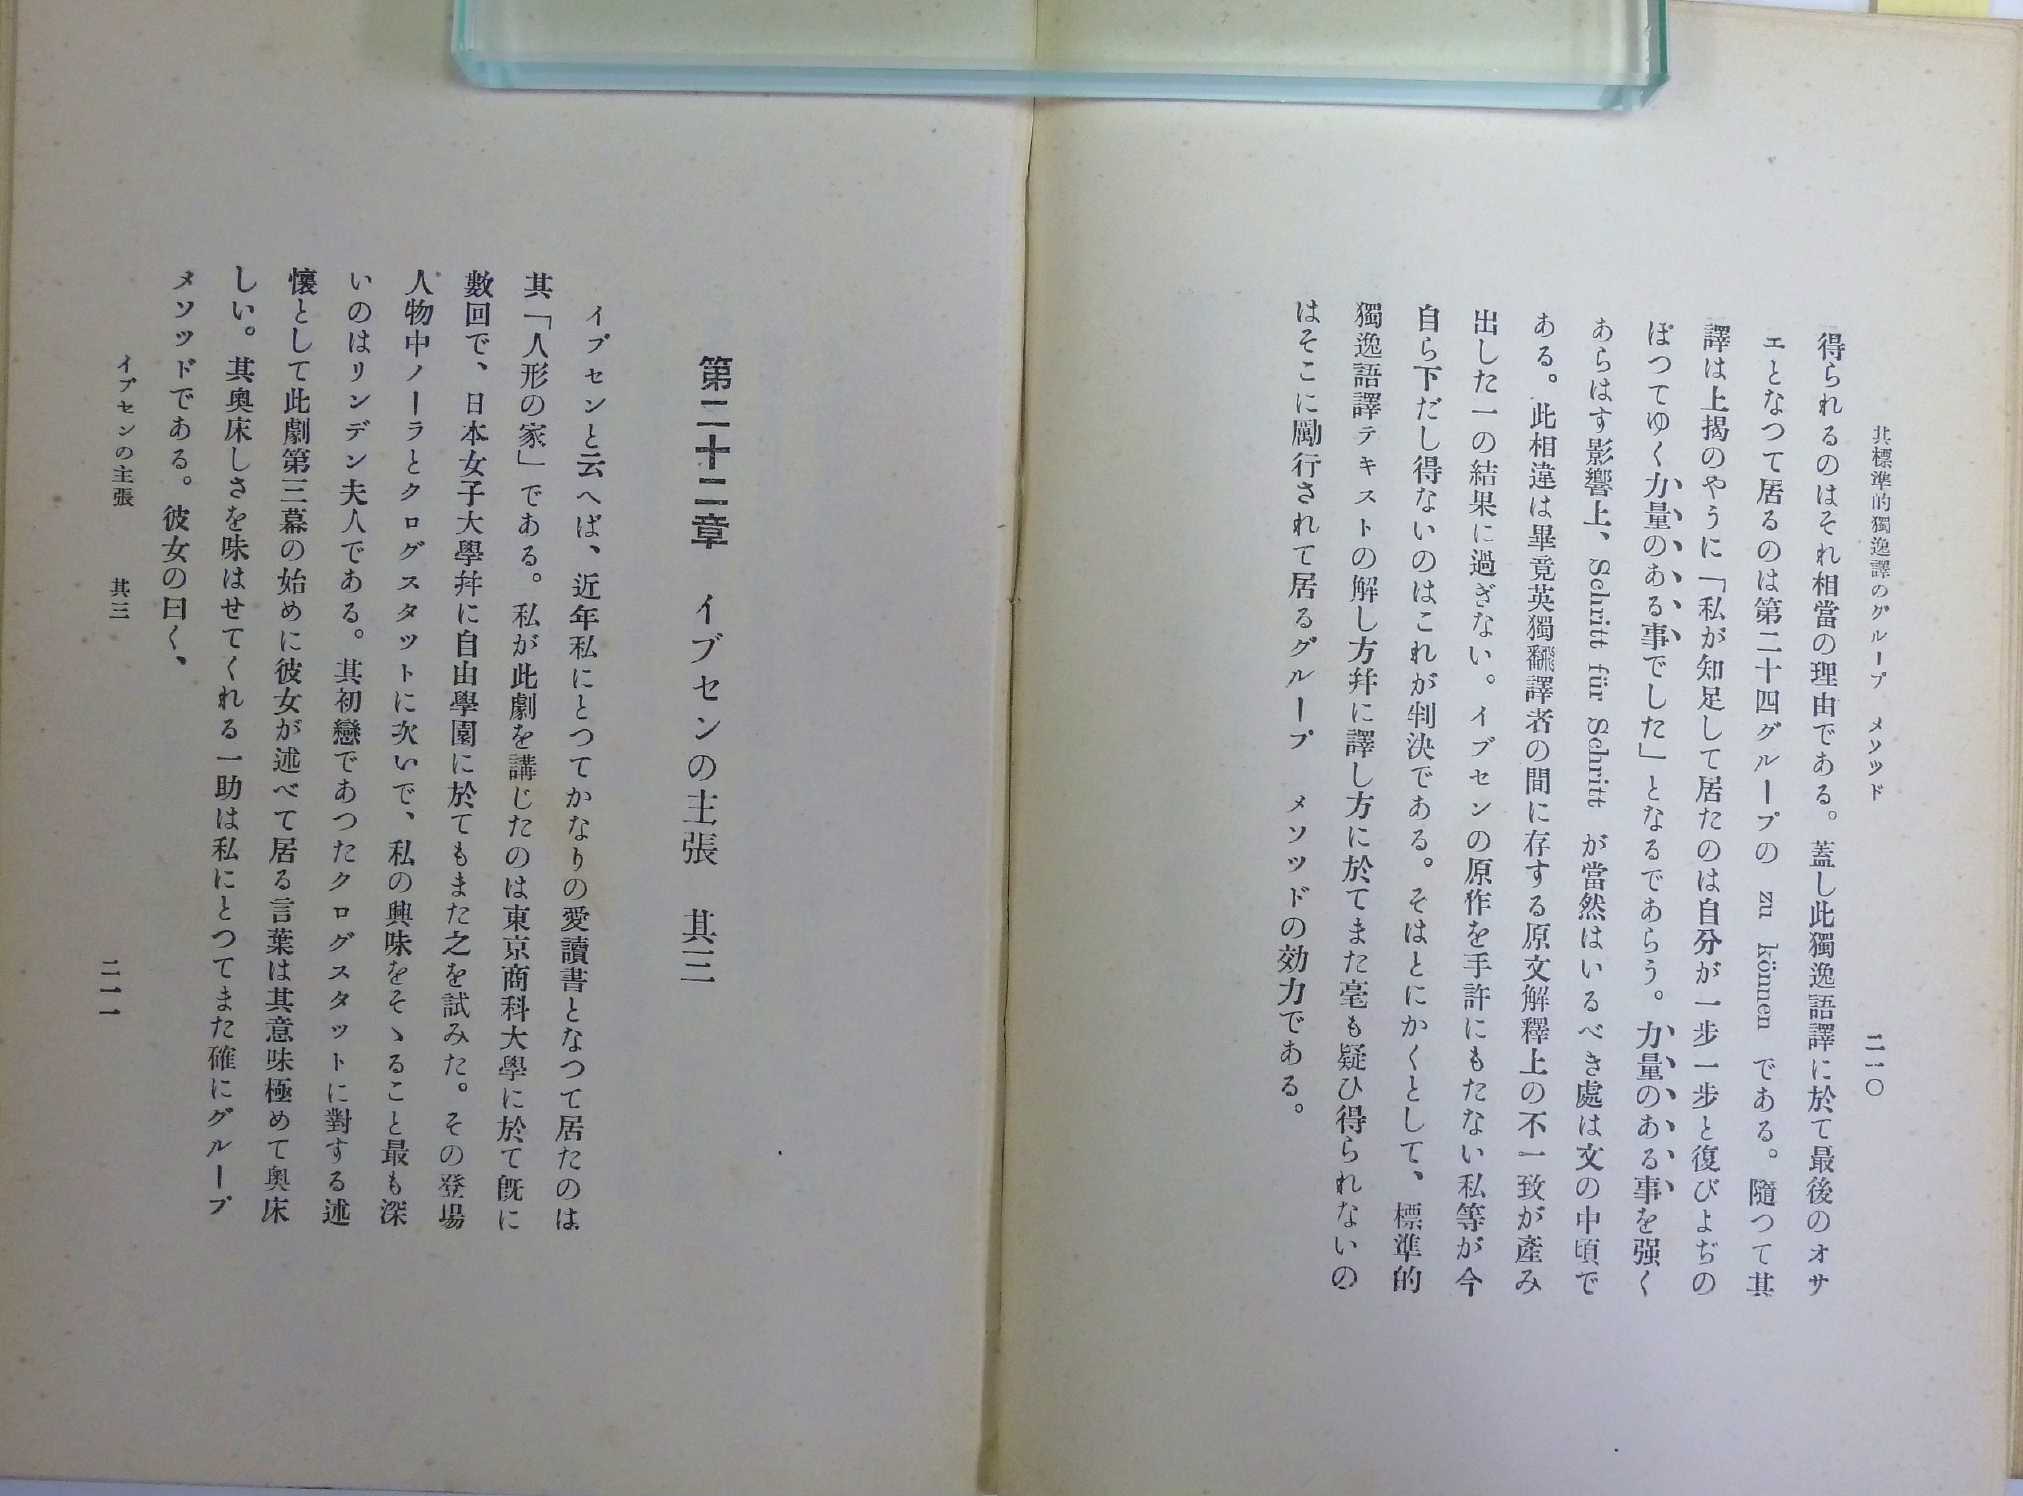 其標準的獨逸譯のグループ　メソッド
二一〇
得られるのはそれ相當の理由である。蓋し此獨逸語譯に於て最後のオサ
エとなつて居るのは第二十四グループの　zu können　である。隨つて其
譯は上揭のやうに「私が知足して居たのは自分が一步一步と復びよぢの
ぼつてゆく力量のある事でした」となるであらう。力量のある事を强く
あらはす影響上、Schritt für Schritt が當然はいるべき處は文の中頃で
ある。此相違は畢竟英獨飜譯者の間に存する原文解釋上の不一致が產み
出した一の結果に過ぎない。イブセンの原作を手許にもたない私等が今
自ら下だし得ないのはこれが判決である。そはとにかくとして、標準的
獨逸語譯テキストの解し方幷に譯し方に於てまた毫も疑ひ得られないの
はそこに勵行されて居るグループ　メソッドの効力である。
第二十二章　イブセンの主張　其三
イブセンと云へば、近年私にとつてかなりの愛讀書となつて居たのは
其「人形の家」である。私が此劇を講じたのは東京商科大學に於て旣に
數回で、日本女子大學幷に自由學園に於てもまた之を試みた。その登場
人物中ノーラとクログスタットに次いで、私の興味をそゝること最も深
いのはリンデン夫人である。其初戀であつたクログスタットに對する述
懷として此劇第三幕の始めに彼女が述べて居る言葉は其意味極めて奧床
しい。其奧床しさを味はせてくれる一助は私にとつてまた確にグループ
メソッドである。彼女の曰く、
イブセンの主張　其三
二一一